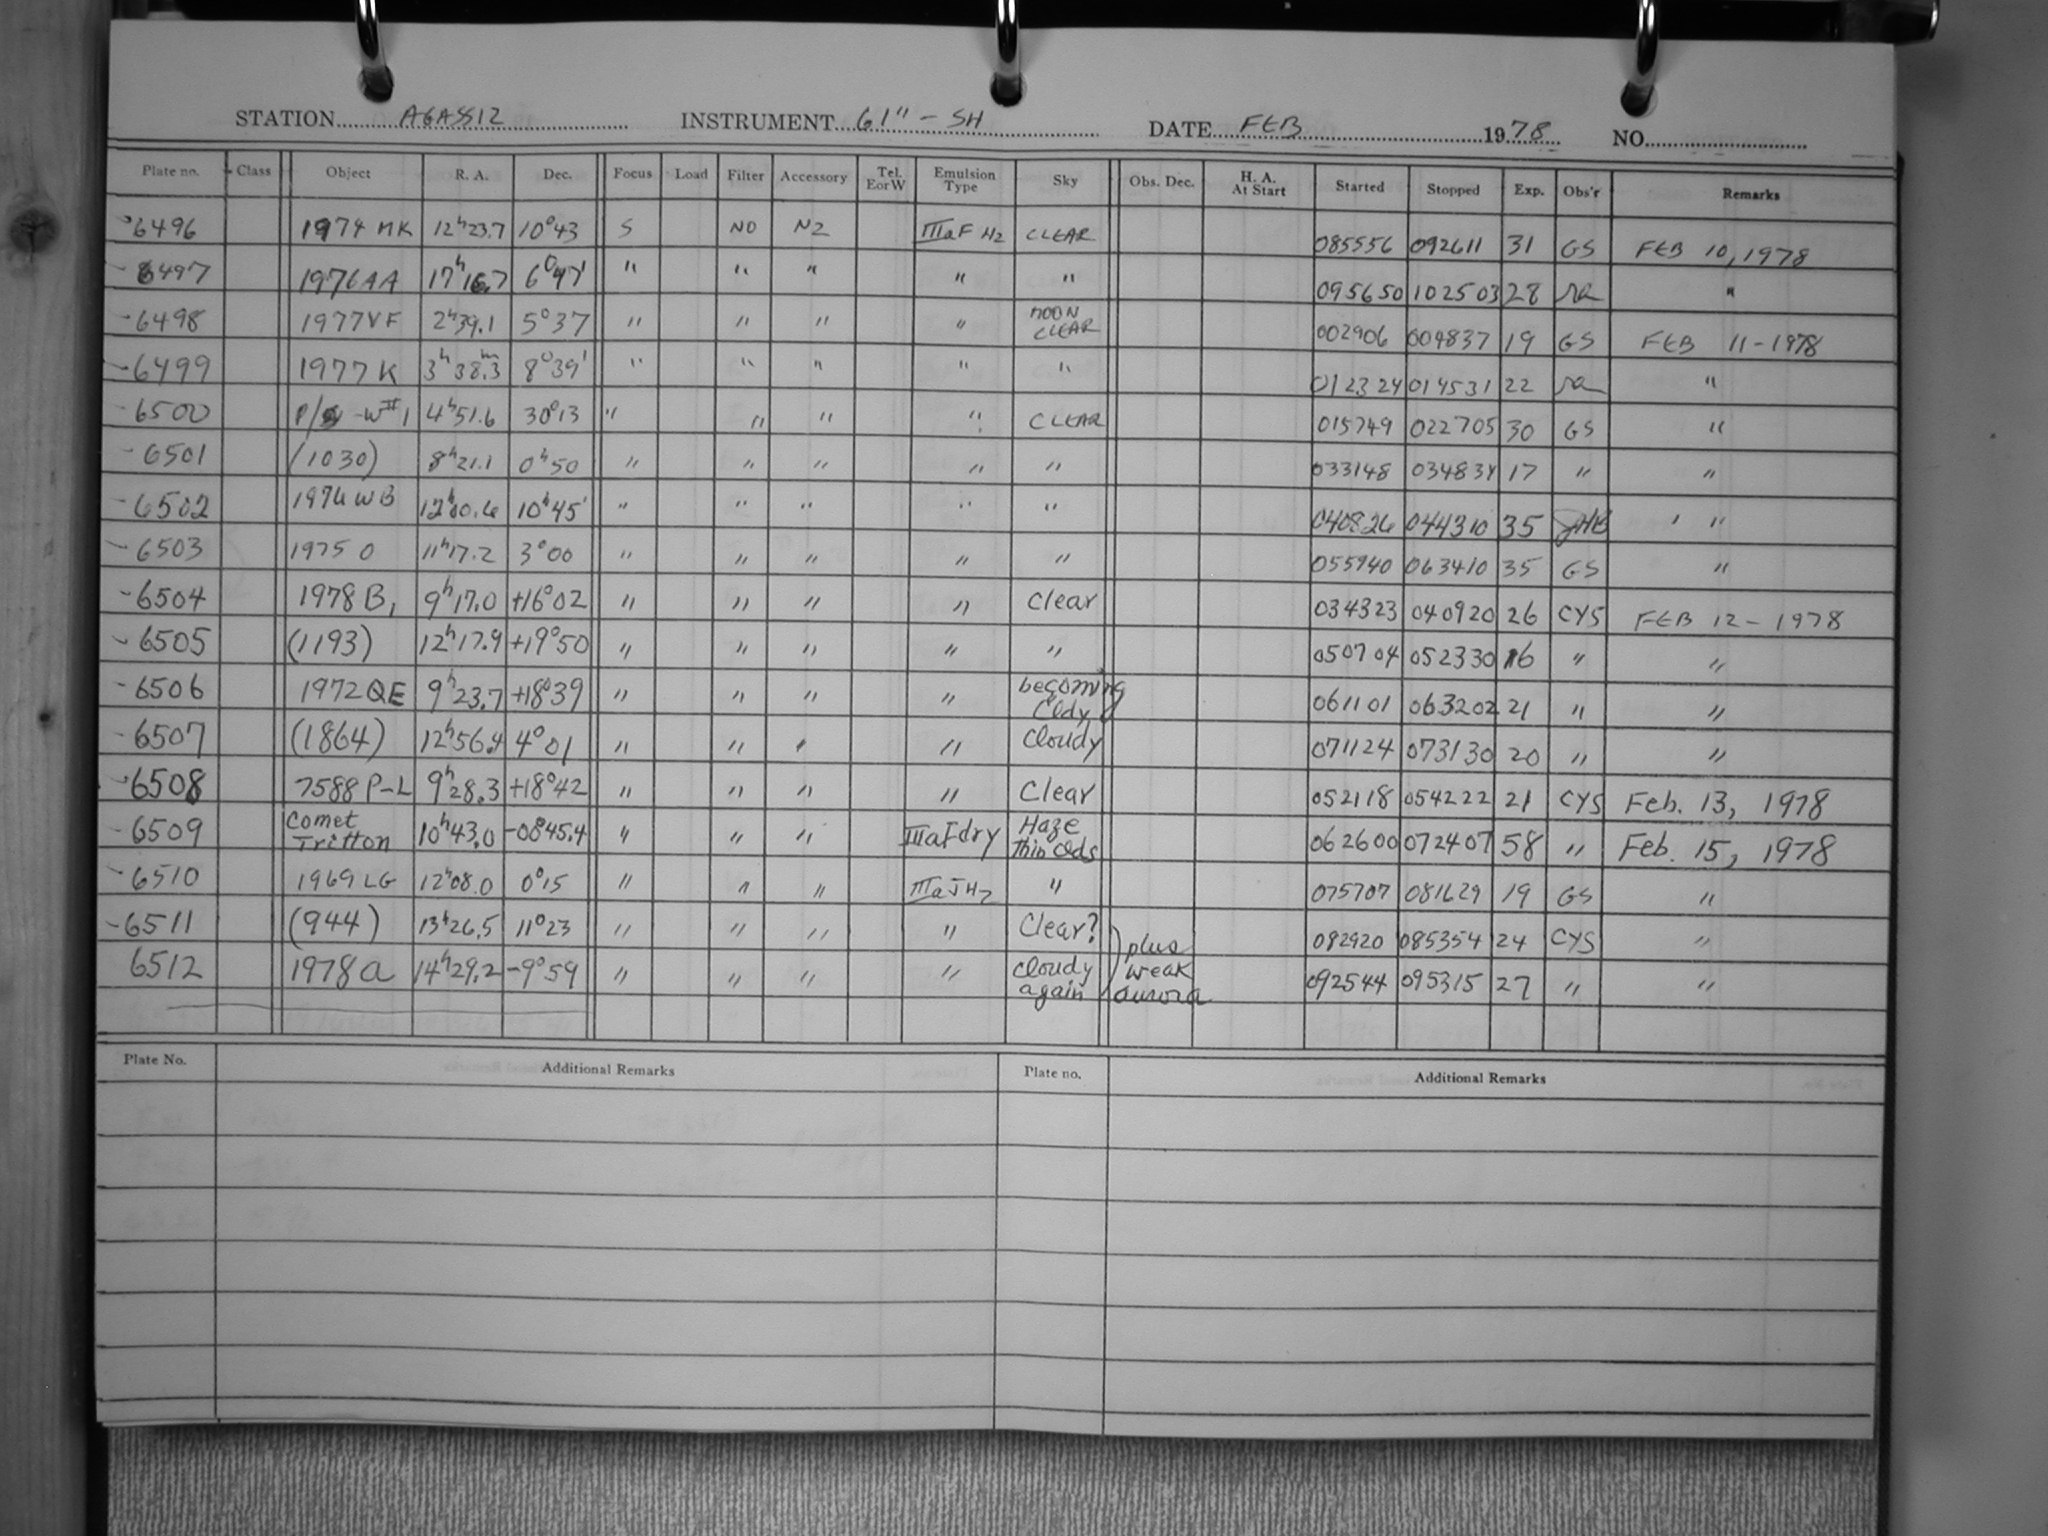 STATION AGASSIZ INSTRUMENT 61" - SH DATE FEB 1978 NO.
Plate no. Class Object R. A. Dec. Focus Load Filter Accessory Tel. E or W Emulsion Type Sky Obs. Dec. H. A. At Start Started Stopped Exp. Obs'r Remarks
6496 1974 MK 12h23.7 10°43 S NO N2 IIIaF H2 CLEAR 085556 092611 31 GS FEB 10, 1978
6497 1976AA 17h16.7 6°47' " " " " " 095650 102503 28 "
6498 1977VF 2h39.1 5°37 " " " " MOON CLEAR 002906 004837 19 GS FEB 11-1978
6499 1977 K 3h38.3m 8°39' " " " " " 012324 014531 22 "
6500 -W#1 4h51.6 30°13 " " " " CLEAR 015749 022705 30 GS "
6501 (1030) 8h21.1 0h50 " " " " " 033148 034834 17 " "
6502 1976 WB 12h00.6 10h45' " " " " " 040826 044310 35 JHB "
6503 1975 O 11h17.2 3°00 " " " " " 055940 063410 35 GS "
6504 1978 B1 9h17.0 +16°02 " " " " Clear 034323 040920 26 CYS FEB 12-1978
6505 (1193) 12h17.9 +19°50 " " " " " 050704 052330 16 " "
6506 1972QE 9h23.7 +18°39 " " " " becoming Cldy 061101 063202 21 " "
6507 (1864) 12h56.4 4°01 " " " " Cloudy 071124 073130 20 " "
6508 7588 P-L 9h28.3 +18°42 " " " " Clear 052118 054222 21 CYS Feb. 13, 1978
6509 Comet Tritton 10h43.0 -00°45.4 " " " IIIaF dry Haze thin Clds 062600 072407 58 " Feb. 15, 1978
6510 1969LG 12h08.0 0°15 " " " IIIaJ H2 " 075707 081629 19 GS "
6511 (944) 13h26.5 11°23 " " " " Clear? 082920 085354 24 CYS "
6512 1978a 14h29.2 -9°59 " " " " cloudy again plus weak aurora 092544 095315 27 " "
Plate No. Additional Remarks Plate no. Additional Remarks